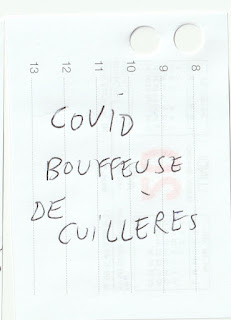 8
9
10
11
12
13
COVID
BOUFFEUSE
DE
CUILLERES